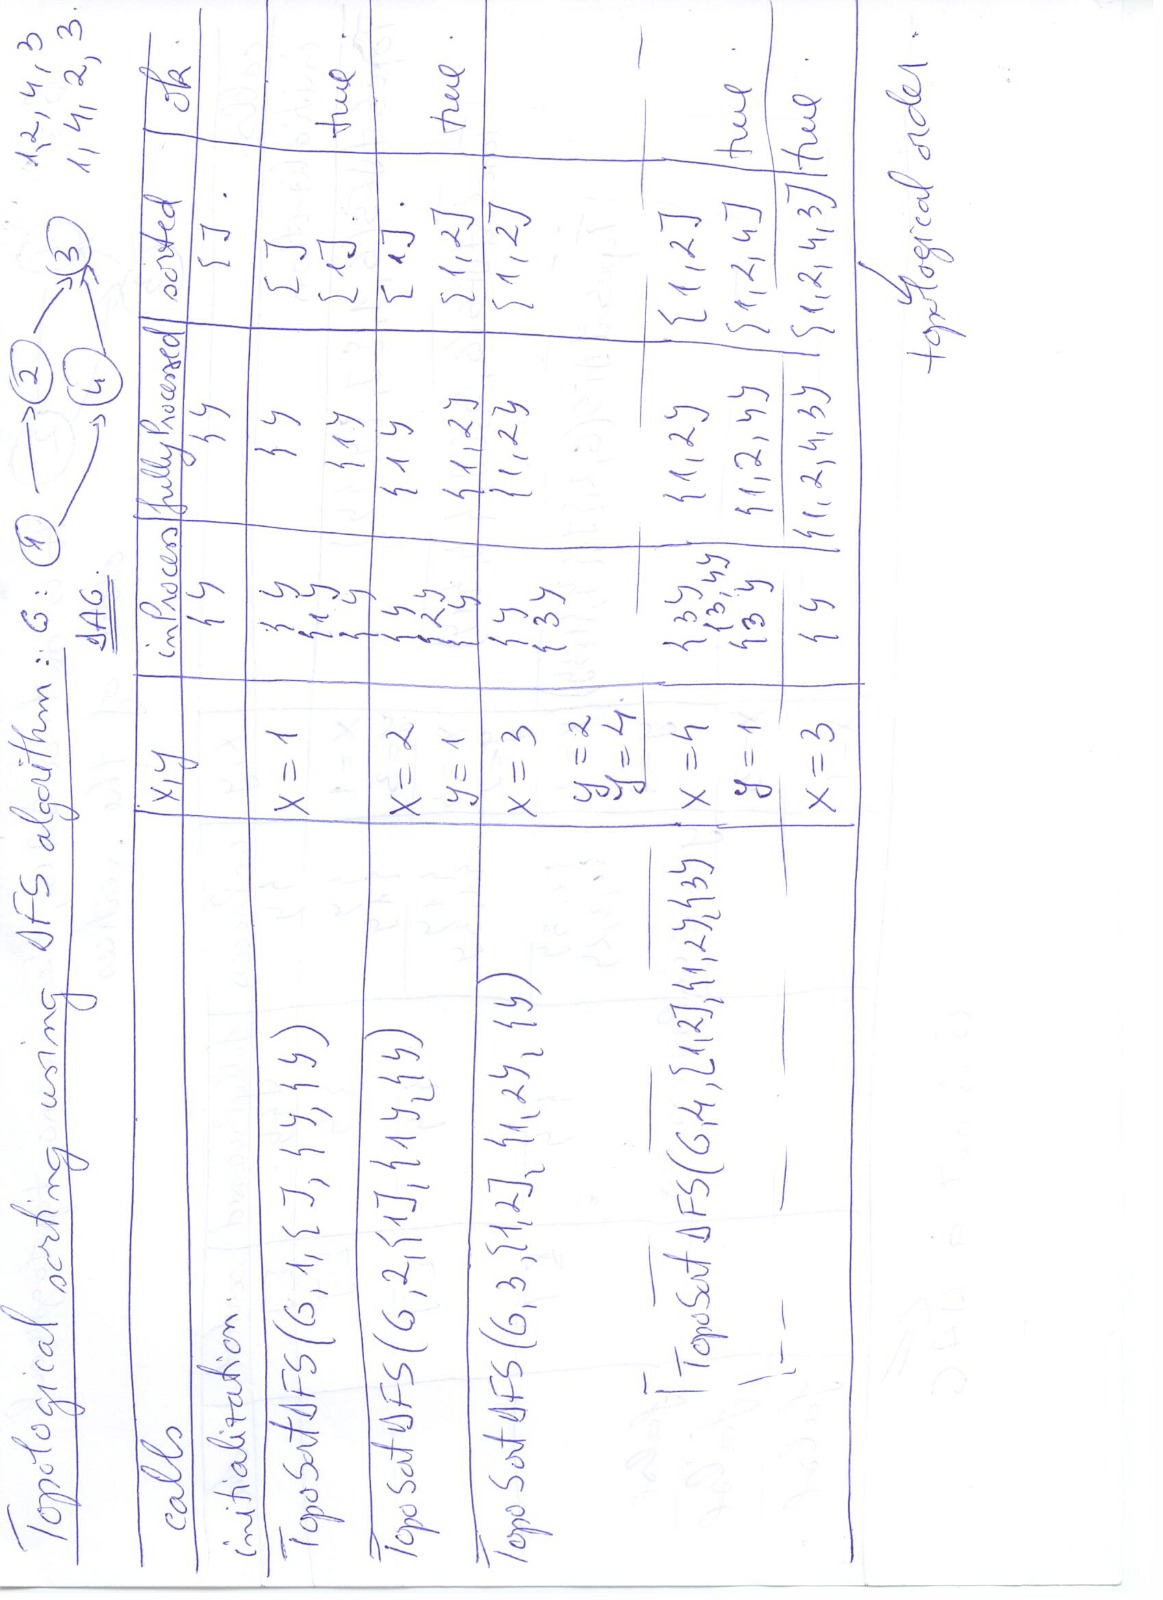 Topological sorting using DFS algorithm: G: 1 2 3 4 1,2,4,3
DAG. 1,4,2,3.
calls x,y inProcess fullyProcessed sorted ok.
initialization. {} {} [].
TopoSortDFS(G,1,[],{},{}) x=1 {} {} []
{1}
{} {1} [1]. true.
TopoSortDFS(G,2,[1],{1},{}) x=2 {} {1} [1].
{2}
y=1 {} {1,2} [1,2] true.
TopoSortDFS(G,3,[1,2],{1,2},{}) x=3 {} {1,2} [1,2]
{3}
y=2
y=4.
TopoSortDFS(G,4,[1,2],{1,2},{3} x=4 {3} {1,2} [1,2]
{3,4}
y=1 {3} {1,2,4} [1,2,4] true.
x=3 {} {1,2,4,3} [1,2,4,3] true.
topological order.